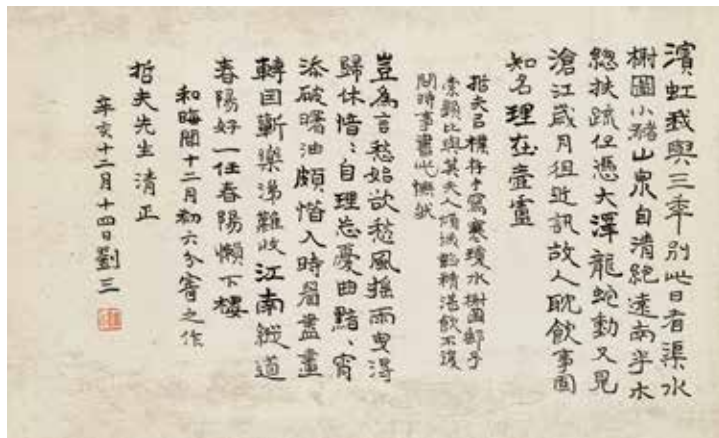 濱虹我與三年別此日看渠水
榭圖小豬山泉自清絕遠南半木
總扶疏但憑大澤龍蛇動又見
滄江歲月徂近訊故人耽飲事固
知名理在壺盧
哲夫召樸存卜寫寒瓊水榭圖郵乎
索題比與其夫人傾城韜精湛飲不復
問時事書此憮然
豈為言愁始欲愁風搖雨曳得
歸休愔愔自理忘憂曲黯黯宵
添破曙油頗惜入時眉盡畫
轉因蘄樂涕難收江南縱道
春陽好一任春陽懶下樓
和晦聞十二月初六夕寄之作
哲夫先生清正
辛亥十二月十四日劉三